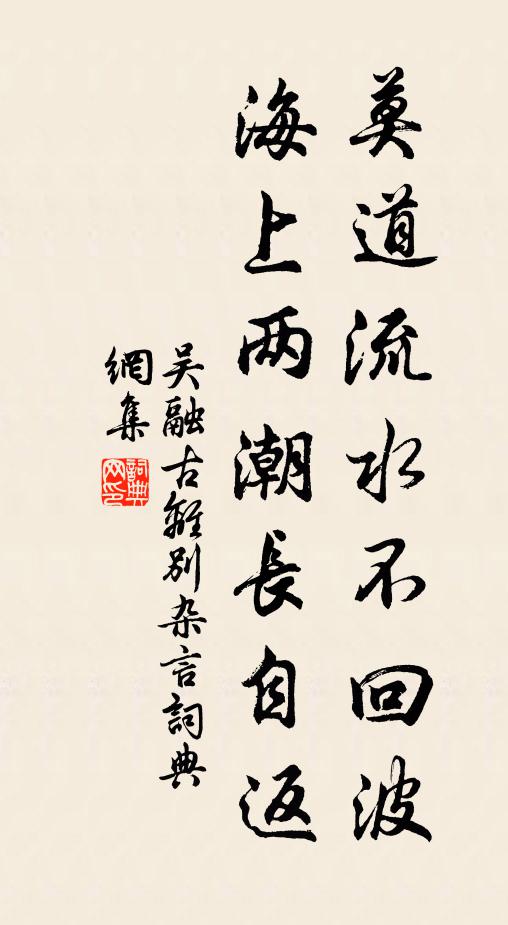 莫道流水不回波
海上两潮長自返
吴融古離别杂言詞典
網集
詞典網印